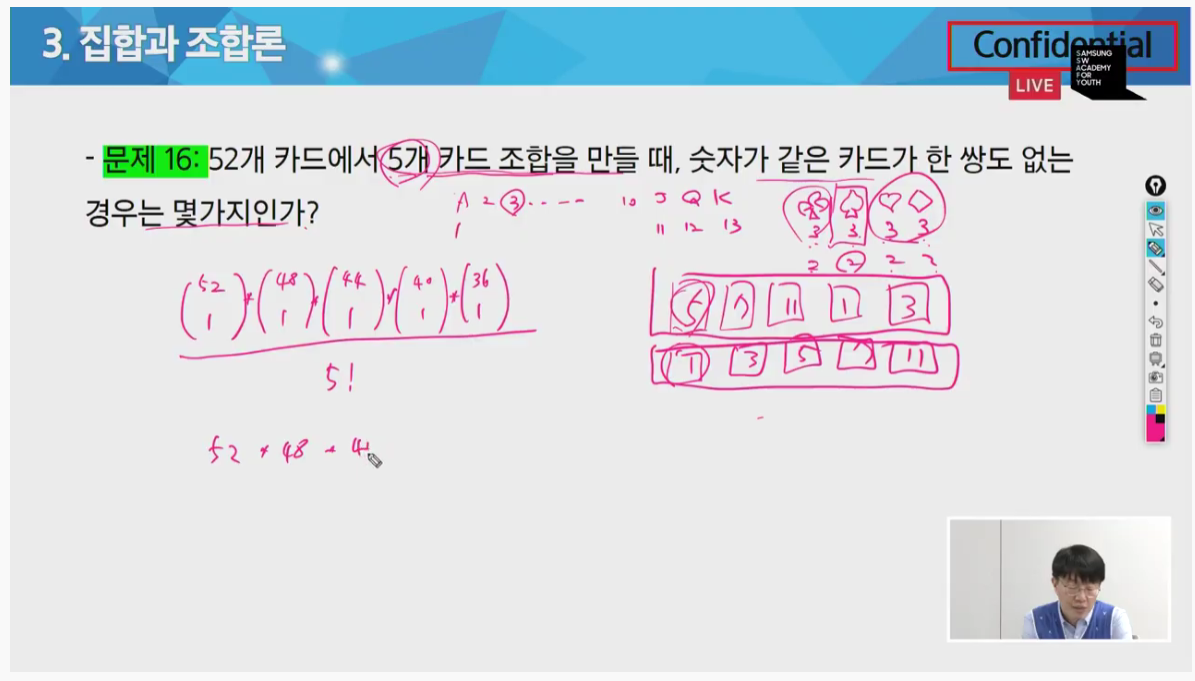 3. 집합과 조합론
Confidential
LIVE
SAMSUNG
SW
ACADEMY
FOR
YOUTH
- 문제 16: 52개 카드에서 5개 카드 조합을 만들 때, 숫자가 같은 카드가 한 쌍도 없는
경우는 몇가지인가?
A 2 3 ---- 10 J Q K
1 11 12 13
3 3 3 3
2 2 2 2
(52 1) * (48 1) * (44 1) * (40 1) * (36 1)
5!
5 7 11 1 3
1 3 5 7 11
52 * 48 * 4